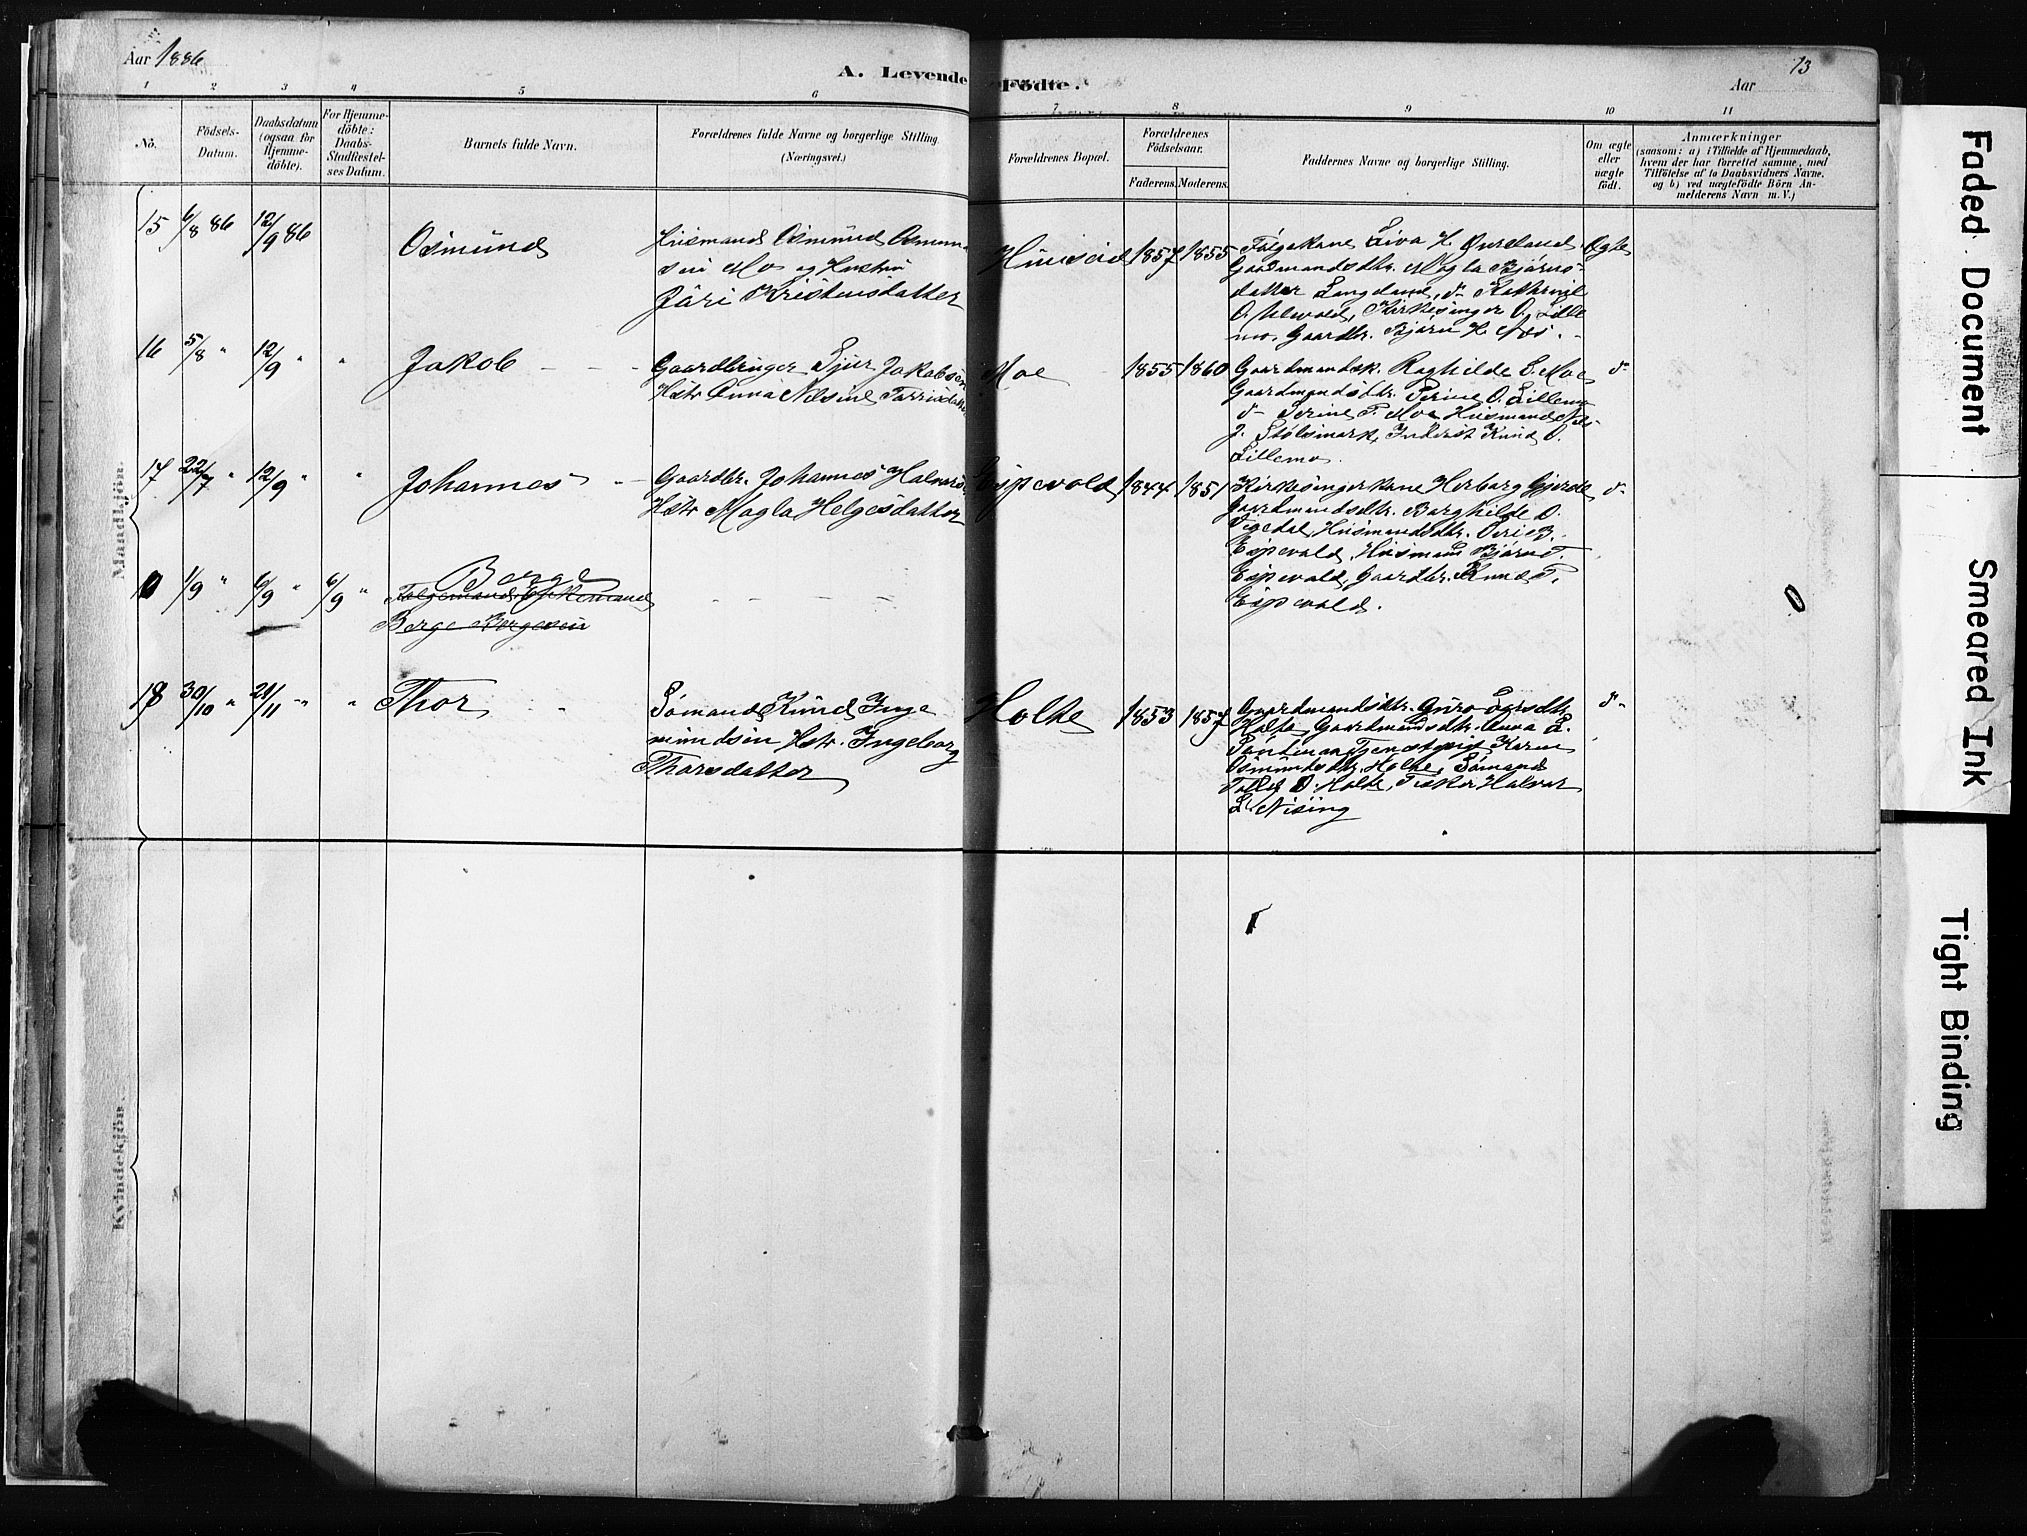 Aar 1886
A. Levende Födte.
13
Aar
1 2 3 4 5 6 7 8 9 10 11
No.
Födsels-
Datum.
Daabsdatum
(ogsaa for
Hjemme-
döbte).
For Hjemme-
döbte:
Daabs-
Stadfæstel-
ses Datum.
Barnets fulde Navn.
Forældrenes fulde Navne og borgerlige Stilling
(Næringsvei.)
Forældrenes Bopæl.
Forældrenes
Födselsaar.
Faderens. Moderens.
Faddernes Navne og borgerlige Stilling.
Om ægte
eller
uægte
födt.
Anmærkninger
(saasom: a) i Tilfælde af Hjemmedaab,
hvem der har forrettet samme, med
Tilföielse af to Daabsvidners Navne,
og b) ved uægtefödte Börn An-
melderens Navn m. V.)
Mandkjön.
15 6/8 86 12/9 86
Osmund
Husmand Osmund Osmun
sen Mo og Hustru
Kristensdatter
1857 1855
Følgekone Siva H.
Gaardmandsdtr. Magla Bjørns-
datter Langeland, do
Kirkesinger O. Lille
mo, Gaardbr. Bjørn H.
Ægte
16 5/8 " 12/9 " "
Jakob
Gaardbruger Sjur Jakobsen
Hstr Anna
Moe
1855 1860
Gaardmandsk. Raghilde E. Moe
Gaardmandsdtr. Serine O. Lillemo
do Serine T. Moe Husmand
J. Stølsmark, Knud O.
Lillemo.
do
17 22/7 " 12/9 " "
Johannes
Gaardbr. Johannes Halvors
Hstr Magla Helgesdatter
Espevold
1844 1851
Kirkesingerkone Herborg Gjerde
Gaardmandsdtr. Borghilde O.
Husmandsdtr. B.
Espevold, Husmand Bjørn T.
Espevold, Gaardbr. Knud T.
Espevold.
do
0 1/9 " 6/9 " 6/9 "
Berge
Berge Bergesen
0
18 30/10 " 21/11 " "
Thor
Sømand Knud Inge
mundsen Hstr. Ingeborg
Thorsdatter
Holte
1853 1857
Gaardmandsdtr. Guro Larsdtr.
Holte, Gaardmandsdtr. Anna
Tjenestepige Karen
Osmundsdtr. Holte, Sømand
O. Holte, Fisker Halvor
L. Nising
do
Kvindekjön.
Faded Document
Smeared Ink
Tight Binding